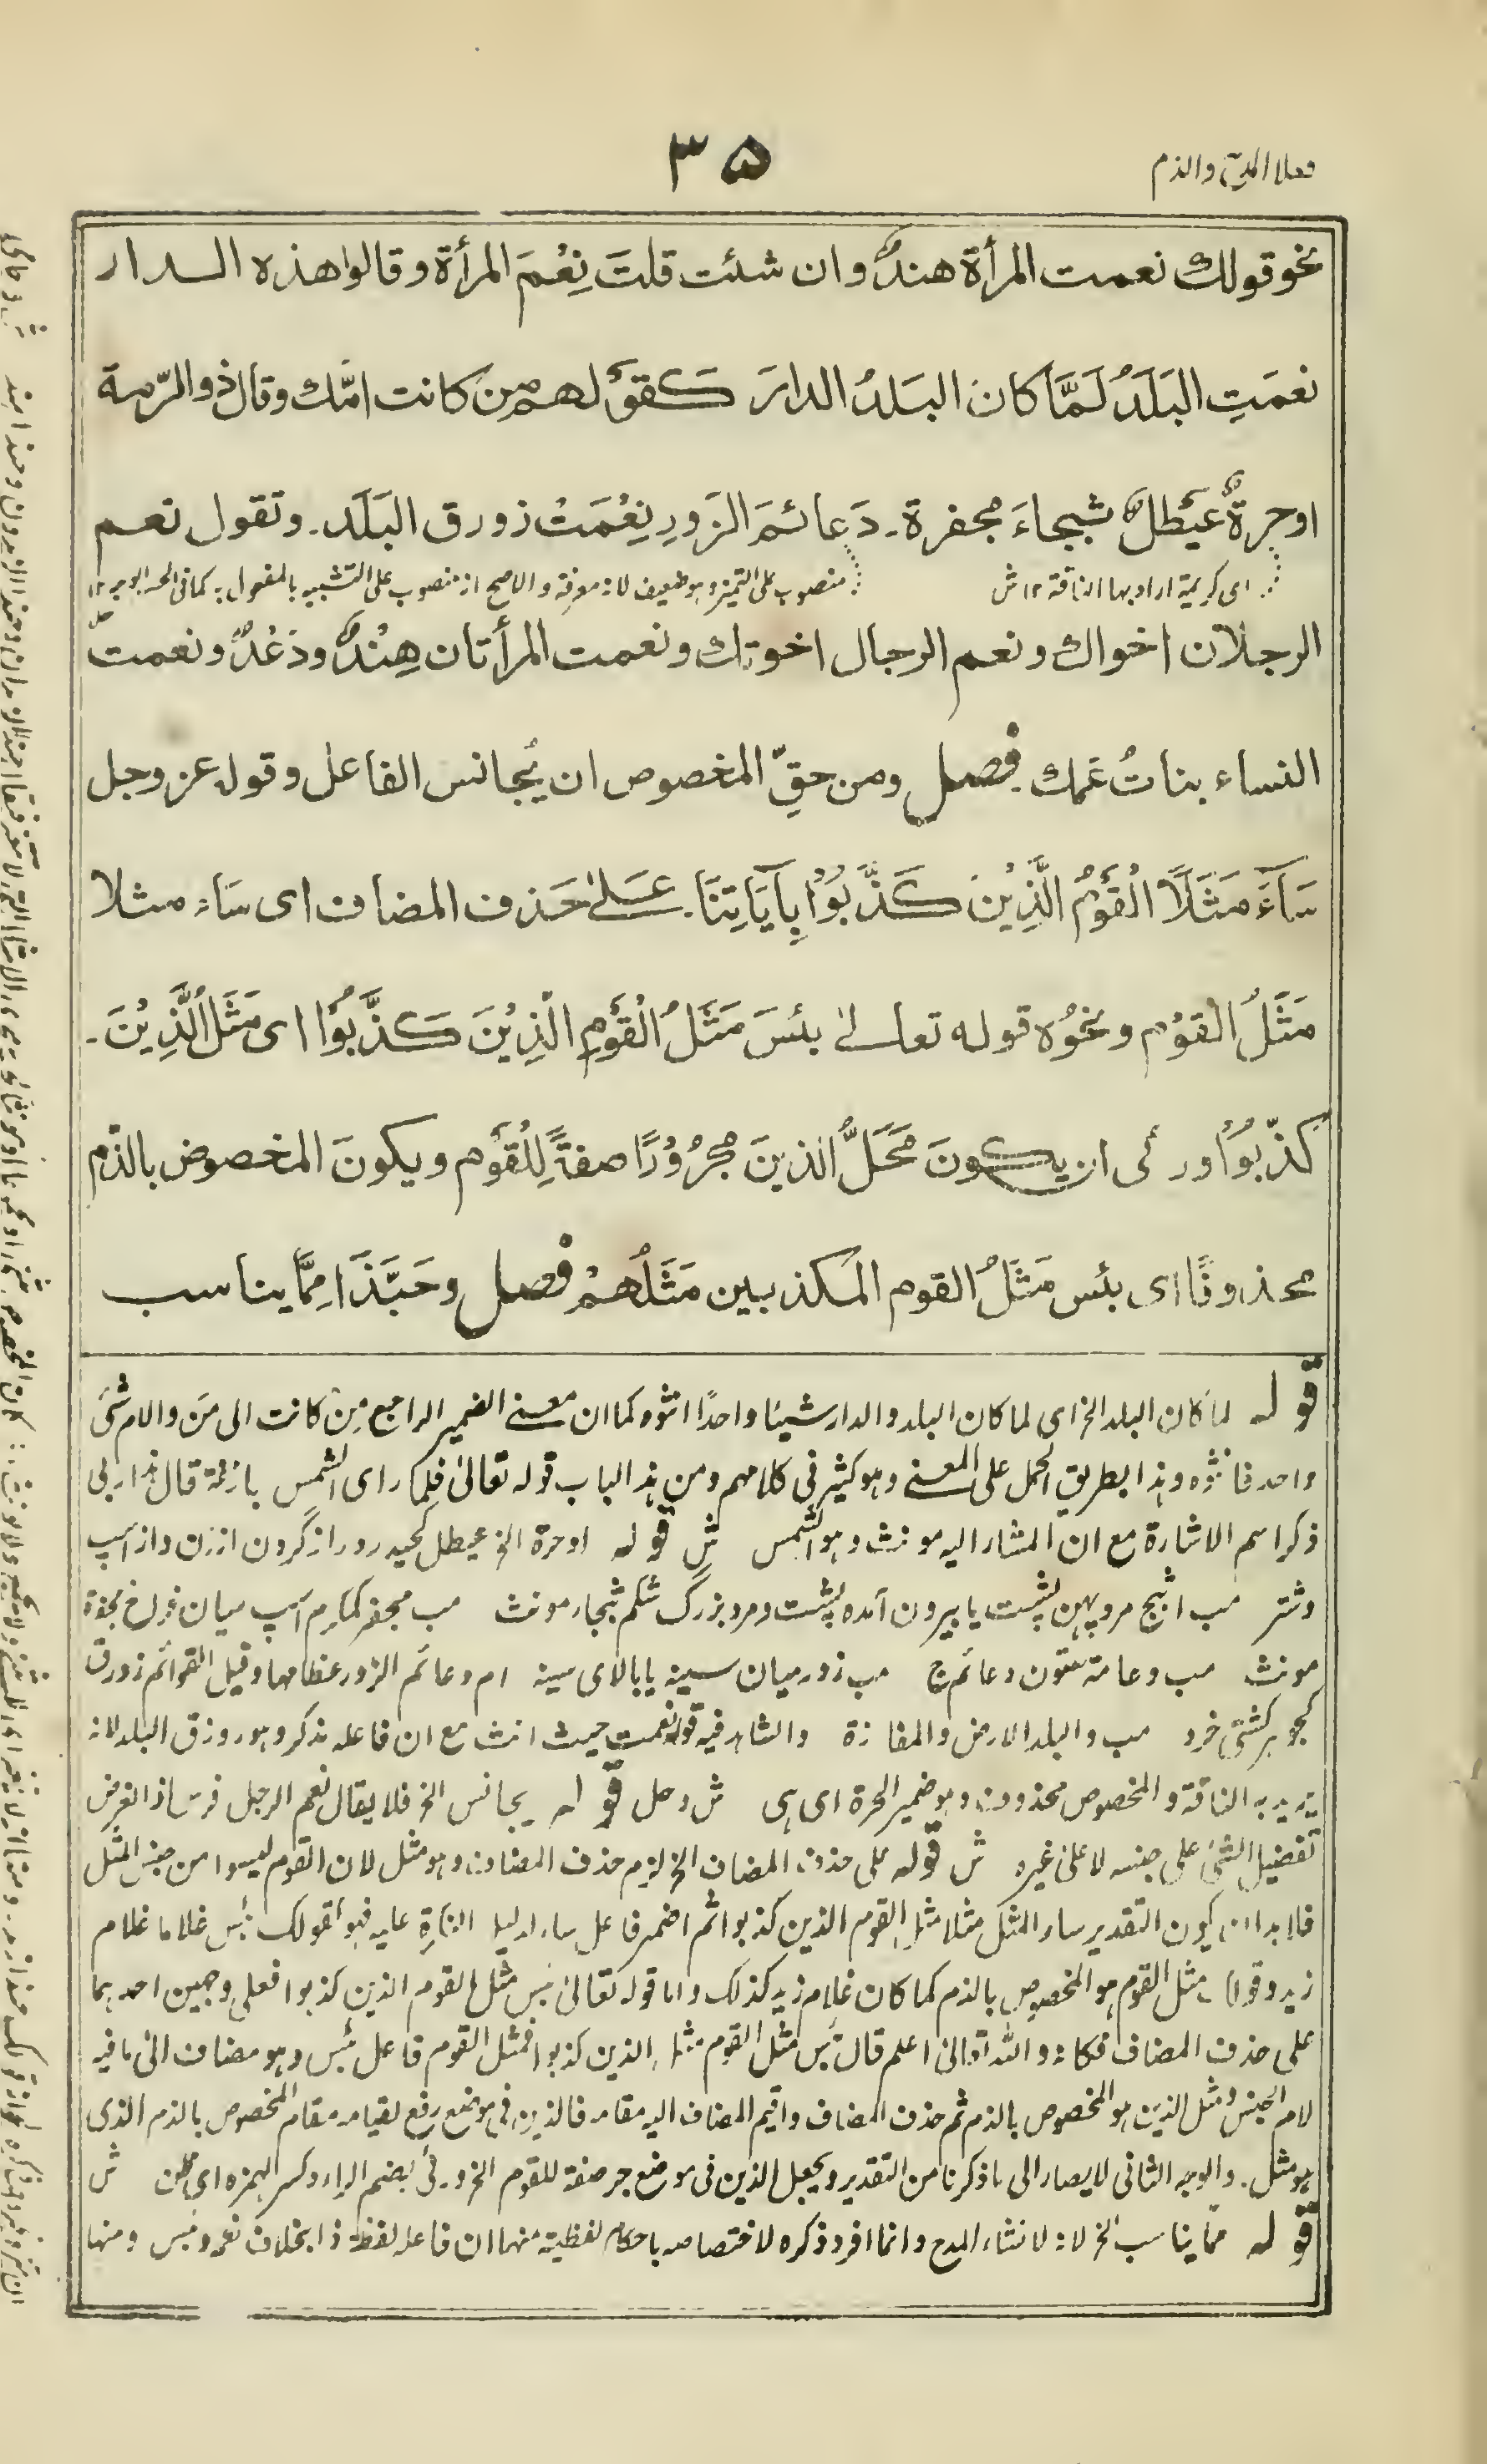 فعلا المدح والذم
۳۵
نحو قولك نعمت المرأة هندٌ وان شئت قلتَ نِعْمَ المرأة وقالوا هذه الدار
نعمَتِ البَلَدُ لَمَّا كان البَلدُ الدارَ كقَوْلهم من كانت امّك وقال ذو الرّمة
او حرةٌ عَيْطلٌ ثبجاءَ مجفرة ـ دَعائمَ الزَورِ نِعْمَتْ زورق البَلَد ـ وتقول نعم
اى كريمة اراد بها الناقة ۱۲ ش
منصوب على التميز وهو ضعيف لانه معرفة والاصح انه منصوب على التشبيه بالمفعول به كما فى الحسن الوجه ۱۲
الرجلان اخواك ونعم الرجال اخوتك ونعمت المرأتان هِنْدٌ ودَعْدٌ ونعمت
النساء بناتُ عَمك فصل ومن حقِّ المخصوص ان يُجانس الفاعل وقوله عز وجل
سَآءَ مَثَلًا الْقَوْمُ الَّذِيْنَ كَذَّبُوْا بِآيَاتِنَا ـ عَلىٰ حَذف المضاف اى سَاء مثلا
مَثَلُ القوْم ونحْوُه قوله تعالىٰ بئسَ مَثَلُ الْقَوْمِ الَّذِيْنَ كَذَّبُوْا اى مَثَلُ الَّذِيْنَ ـ
كَذّبُوْا ورُئى ان يكونَ مَحَلُّ الذينَ مجرُوْرًا صفةً لِلْقَوْم ويكونَ المخصوص بالذّم
محذوفًا اى بئس مَثَلُ القوم المكذبين مَثَلُهمْ فصل وحَبَّذَا مِمَّا يناسب
قوله لما كان البلد الخ اى لما كان البلد والدار شيئا واحدًا انثوه كما ان معنى الضمير الراجع مِن كانت الى مَن والام شئ
واحد فانثوه وهذا بطريق الحمل على المعنى وهو كثير فى كلامهم ومن هذا الباب قوله تعالىٰ فلما رأى الشمس بازغة قال هذا ربى
ذكر اسم الاشارة مع ان المشار اليه مونث وهو الشمس ش قوله او حرة الخ عيطل كحيدر دراز گردن از زن واز اسپ
وشتر مب اثبج مرد پهن پشت يا بيرون آمده پشت ومرد بزرگ شكم ثبجاء مونث مب مجفر كمكرم اسپ ميان فراخ مجفرة
مونث مب دعامة ستون دعائم ج مب زور ميان سينه يا بالاى سينه ام دعائم الزور عظامها وقيل القوائم زورق
كجوهر كشتى خرد مب والبلد الارض والمفازة والشاهد فيه قوله نعمت حيث انث مع ان فاعله مذكر وهو زورق البلد لانه
يريد به الناقة والمخصوص محذوف وهو ضمير الحرة اى هى ش وحل قوله يجانس الخ فلا يقال نعم الرجل فرسا اذ الغرض
تفضيل الشئ على جنسه لا على غيره ش قوله على حذف المضاف الخ لزم حذف المضاف وهو مثل لان القوم ليسوا من جنس المثل
فلا بد ان يكون التقدير ساء المثل مثلا مثل القوم الذين كذبوا ثم اضمر فاعل ساء لدليل النكرة عليه فهو كقولك بئس غلاما غلام
زيد وقولنا مثل القوم هو المخصوص بالذم كما كان غلام زيد كذلك واما قوله تعالىٰ بئس مثل القوم الذين كذبوا فعلى وجهين احدهما
على حذف المضاف فكانه والله تعالىٰ اعلم قال بئس مثل القوم مثل الذين كذبوا فمثل القوم فاعل بئس وهو مضاف الىٰ ما فيه
لام الجنس ومثل الذين هو المخصوص بالذم ثم حذف المضاف واقيم المضاف اليه مقامه فالذين فى موضع رفع لقيامه مقام المخصوص بالذم الذى
هو مثل ـ والوجه الثانى لا يصار الى ما ذكرنا من التقدير ويجعل الذين فى موضع جر صفة للقوم الخ ورئى بضم الراء وكسر الهمزه اى ظن ش
قوله مما يناسب الخ لانه لانشاء المدح وانما افرد ذكره لاختصاصه باحكام لفظية منها ان فاعله لفظة ذا بخلاف نعم وبئس ومنها